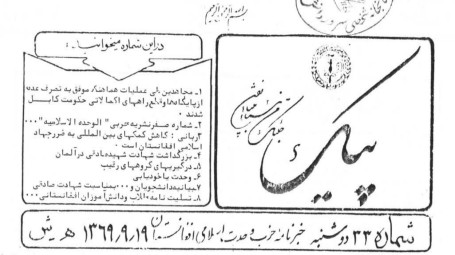 بسم الله الرحمن الرحیم
در این شماره میخوانید:
۱ـ مجاهدین طی عملیات هماهنگ موفق به تصرف عمده
از پایگاه‌ها و قطع راههای اکمالاتی حکومت کابل
شدند.
۲ـ شماره صفر نشریه حزبی "الوحده الاسلامیه"...
ربانی: کاهش کمکهای بین المللی به ضرر جهاد
اسلامی افغانستان است.
۴ـ بزرگداشت شهادت شهید صادقی در آلمان
۵ـ درگیریهای گروههای رقیب
۶ـ وحدت یا خودیابی
۷ـ بیانیه دانشجویان و... بمناسبت شهادت صادقی
۸ـ تسلیت نامه طلاب و دانش آموزان افغانستانی...
پیک
شماره ۳۳ دوشنبه خبرنامه حزب وحدت اسلامی افغانستان ۱۳۶۹٫۹٫۱۹ هـ ش